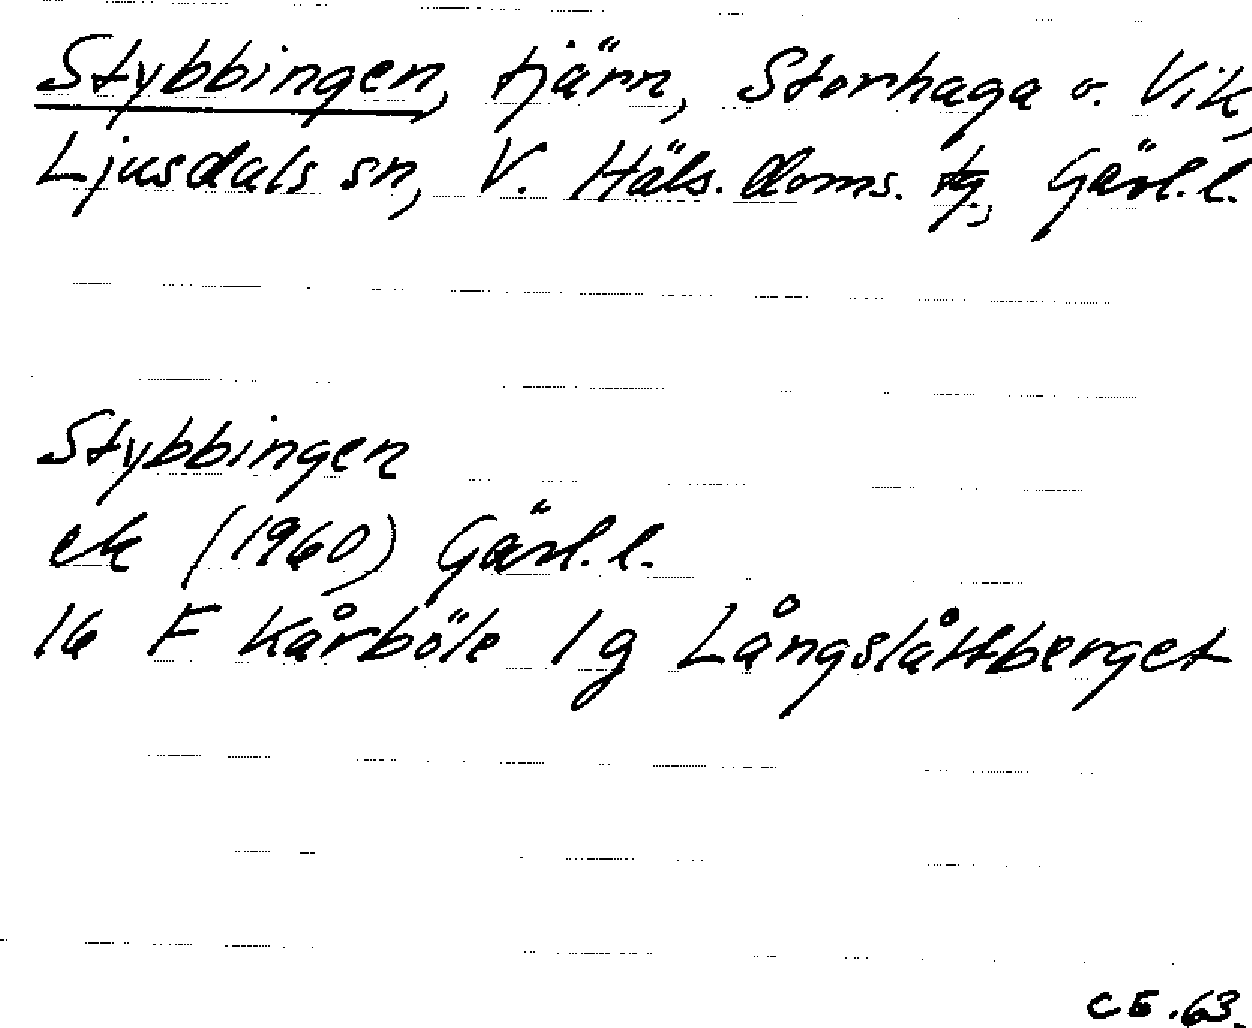 Stybbingen, tjärn, Storhaga o. Vik,
Ljusdals sn, V. Häls. doms. tg, Gävl. l.
Stybbingen
ek (1960) Gävl. l.
16 F Kårböle 1 g Långslåttberget
CE.63.